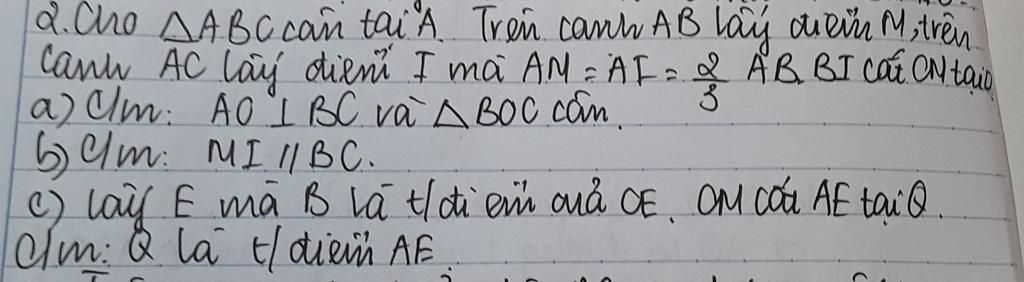 2. Cho △ABC cân tại A. Trên cạnh AB lấy điểm M, trên
cạnh AC lấy điểm I mà AM = AI = 2/3 AB BI cắt CM tại O
a) C/m: AO ⊥ BC và △BOC cân.
b) C/m: MI // BC.
c) lấy E mà B là t/điểm của CE. CM cắt AE tại Q.
C/m: Q là t/điểm AE.